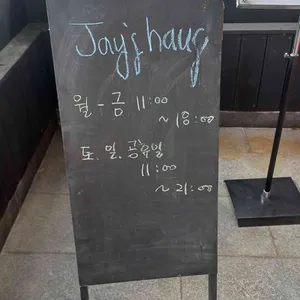 Jay's haus
월 - 금 11:00
~ 18:00
토. 일. 공휴일
11:00
~ 21:00